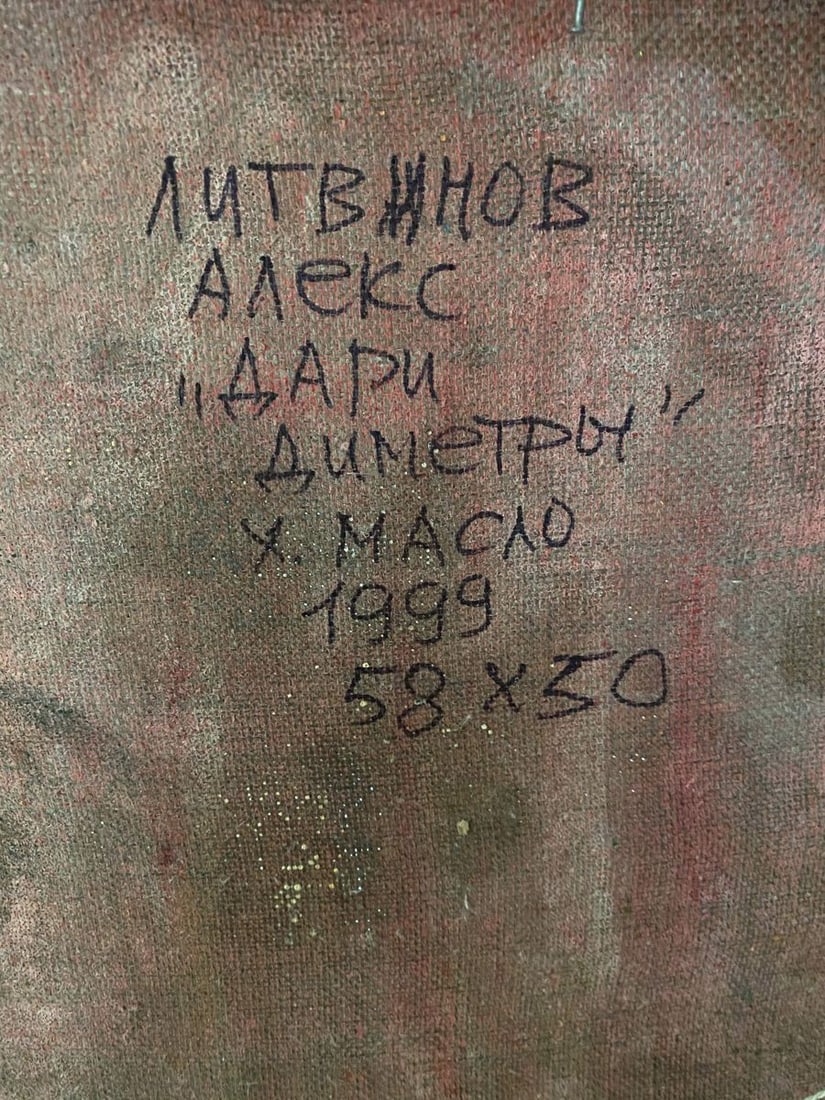 ЛИТВИНОВ
Алекс
„ДАРИ
ДИМЕТРЫ"
х. МАСЛО
1999
58 х 50